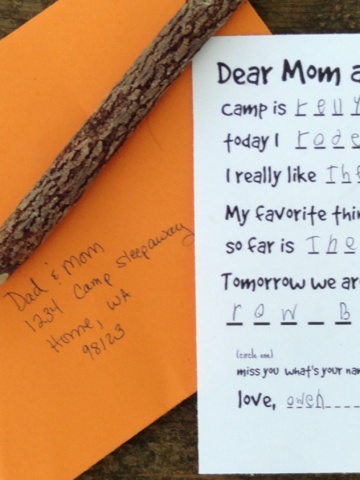 Dad & Mom
1234 Camp Sleepaway
Home, WA
98123
Dear Mom a
camp is relly
today I rode
I really like The
My favorite thin
so far is The
Tomorrow we ar
row B
(circle one)
miss you what's your nam
love, owen